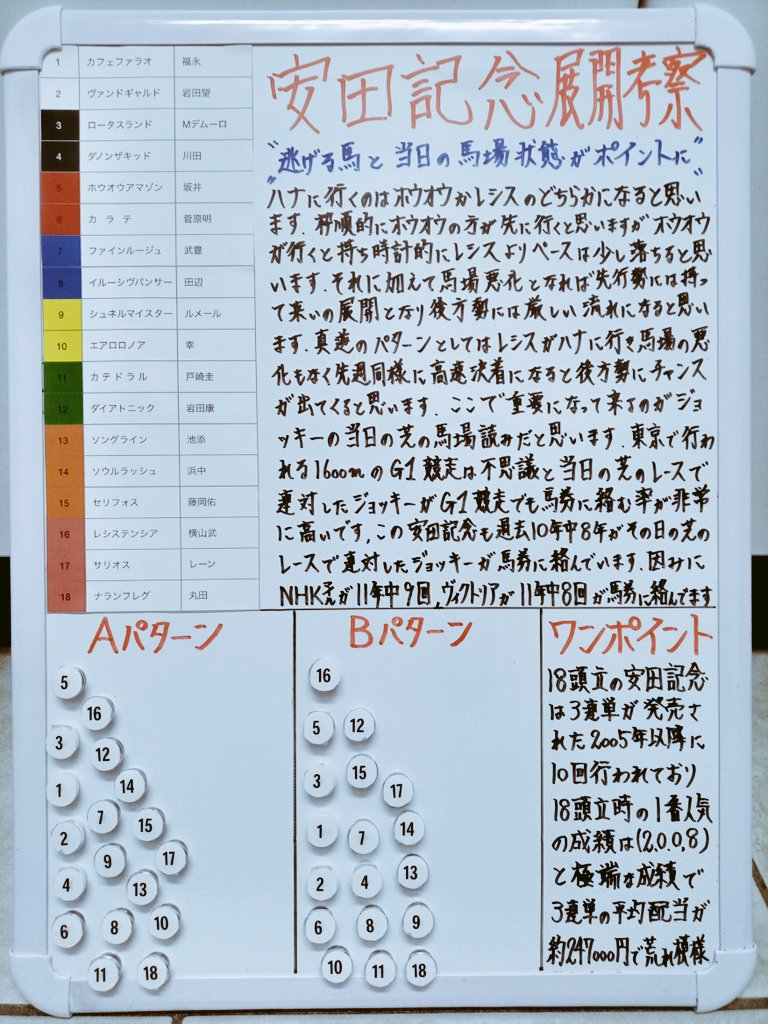 1 カフェファラオ 福永
2 ヴァンドギャルド 岩田望
3 ロータスランド Mデムーロ
4 ダノンザキッド 川田
5 ホウオウアマゾン 坂井
6 カラテ 菅原明
7 ファインルージュ 武豊
8 イルーシヴパンサー 田辺
9 シュネルマイスター ルメール
10 エアロロノア 幸
11 カテドラル 戸崎圭
12 ダイアトニック 岩田康
13 ソングライン 池添
14 ソウルラッシュ 浜中
15 セリフォス 藤岡佑
16 レシステンシア 横山武
17 サリオス レーン
18 ナランフレグ 丸田
安田記念展開考察
"逃げる馬と当日の馬場状態がポイントに"
ハナに行くのはホウオウかレシスのどちらかになると思い
ます。枠順的にホウオウの方が先に行くと思いますがホウオウ
が行くと持ち時計的にレシスよりペースは少し落ちると思
います。それに加えて馬場悪化となれば先行勢には持っ
て来いの展開となり後方勢には厳しい流れになると思い
ます。真逆のパターンとしてはレシスがハナに行き馬場の悪
化もなく先週同様に高速決着になると後方勢にチャンス
が出てくると思います。ここで重要になって来るのがジョ
ッキーの当日の芝の馬場読みだと思います。東京で行わ
れる1600mのG1競走は不思議と当日の芝のレースで
連対したジョッキーがG1競走でも馬券に絡む率が非常
に高いです。この安田記念も過去10年中8年がその日の芝の
レースで連対したジョッキーが馬券に絡んでいます。因みに
NHKマイルが11年中9回、ヴィクトリアが11年中8回が馬券に絡んでます
Aパターン
5
16
3
12
1
14
7
15
2
9
17
4
13
6
8
10
11
18
Bパターン
16
5 12
3 15 17
1 7 14
2 4 13
6 8 9
10 11 18
ワンポイント
18頭立の安田記念
は3連単が発売さ
れた2005年以降に
10回行われており
18頭立時の1番人気
の成績は(2.0.0.8)
と極端な成績で
3連単の平均配当が
約247000円で荒れ模様